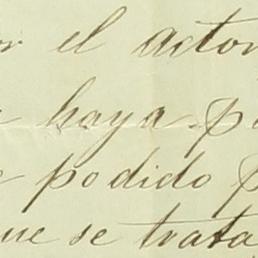 or el actor
haya p
podido p
que se trata